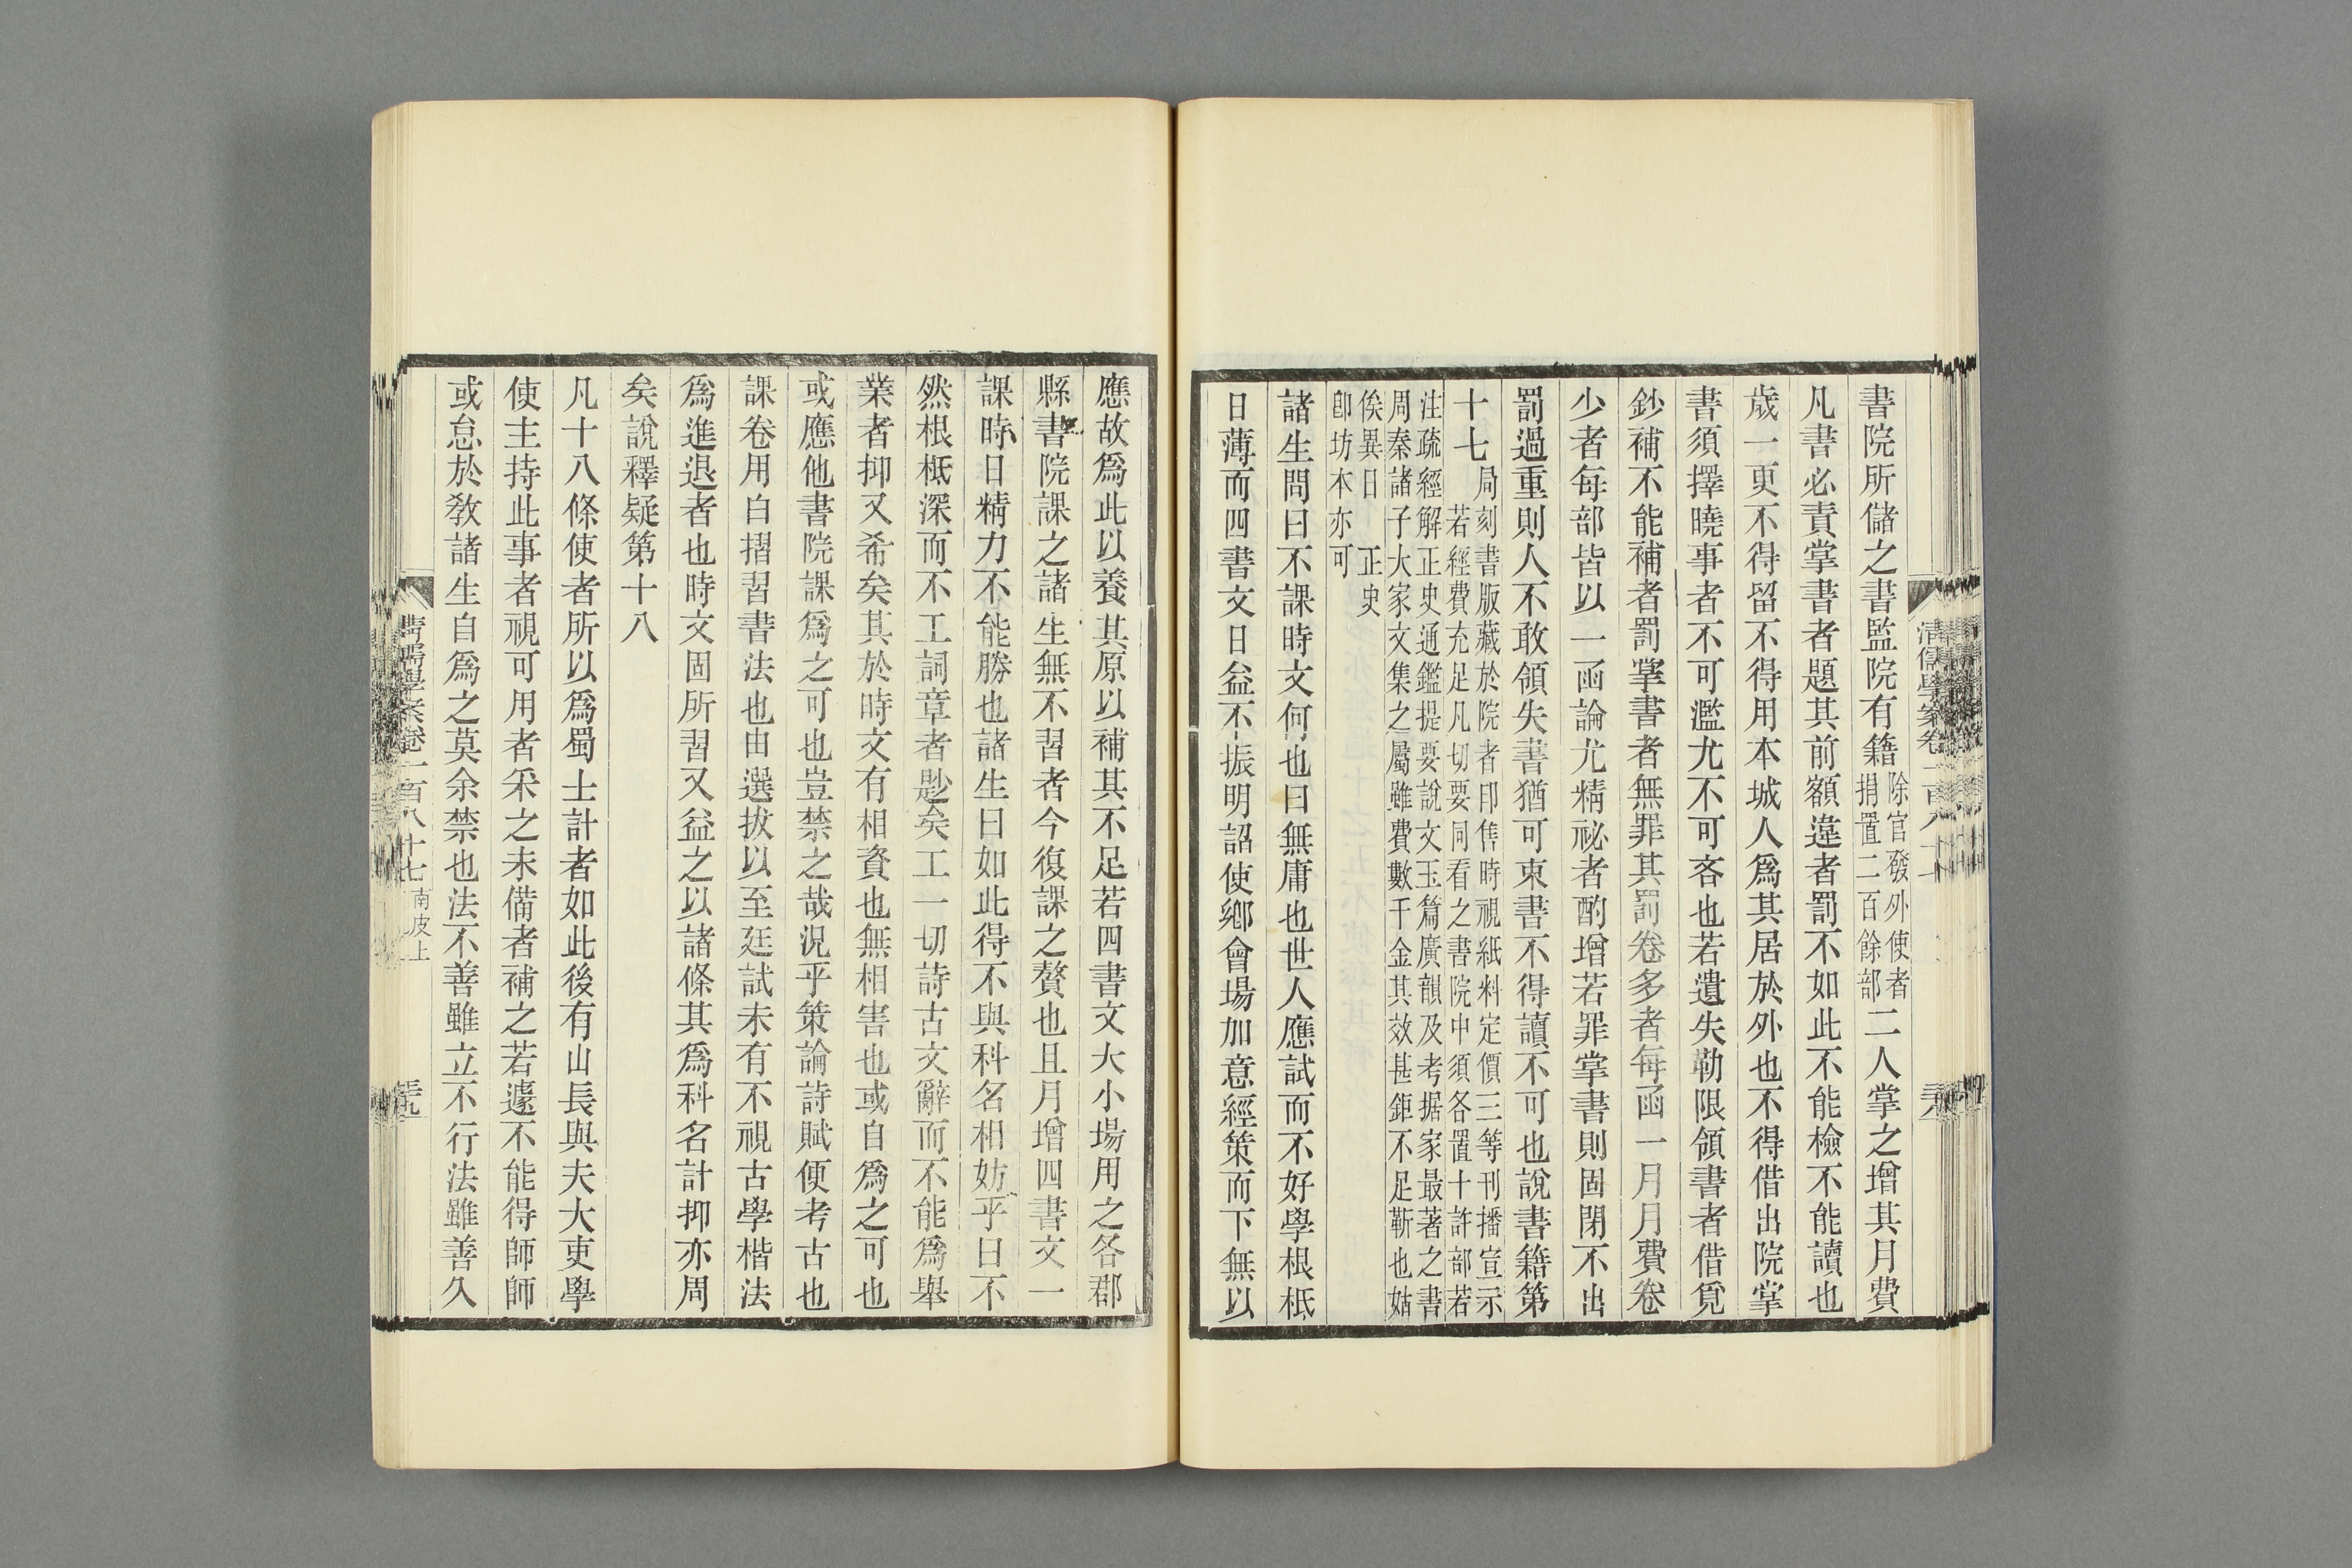 書院所儲之書監院有籍除官發外使者捐置二百餘部二人掌之增其月費
凡書必責掌書者題其前額違者罰不如此不能檢不能讀也
歲一更不得留不得用本城人爲其居於外也不得借出院掌
書須擇曉事者不可濫尤不可吝也若遺失勒限領書者借覓
鈔補不能補者罰掌書者無罪其罰卷多者每函一月月費卷
少者每部皆以一函論尤精祕者酌增若罪掌書則固閉不出
罰過重則人不敢領失書猶可束書不得讀不可也說書籍第
十七局刻書版藏於院者印售時視紙料定價三等刊播宣示
若經費充足凡切要同看之書院中須各置十許部若
注疏經解正史通鑑提要說文玉篇廣韻及考据家最著之書
周秦諸子大家文集之屬雖費數千金其效甚鉅不足靳也姑
俟異日正史
卽坊本亦可
諸生問曰不課時文何也曰無庸也世人應試而不好學根柢
日薄而四書文日益不振明詔使鄉會場加意經策而下無以
清儒學案卷一百八十七
應故爲此以養其原以補其不足若四書文大小場用之各郡
縣書院課之諸生無不習者今復課之贅也且月增四書文一
課時日精力不能勝也諸生曰如此得不與科名相妨乎曰不
然根柢深而不工詞章者尟矣工一切詩古文辭而不能爲舉
業者抑又希矣其於時文有相資也無相害也或自爲之可也
或應他書院課爲之可也豈禁之哉況乎策論詩賦便考古也
課卷用白摺習書法也由選拔以至廷試未有不視古學楷法
爲進退者也時文固所習又益之以諸條其爲科名計抑亦周
矣說釋疑第十八
凡十八條使者所以爲蜀士計者如此後有山長與夫大吏學
使主持此事者視可用者采之未備者補之若遽不能得師師
或怠於敎諸生自爲之莫余禁也法不善雖立不行法雖善久
清儒學案卷一百八十七 南皮上